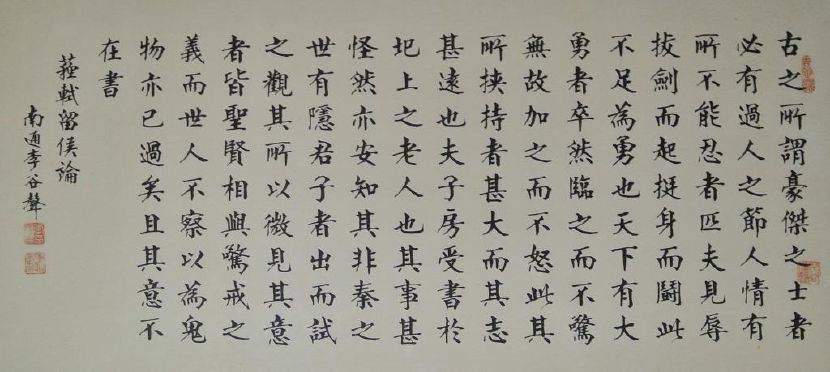 古之所謂豪傑之士者
必有過人之節人情有
所不能忍者匹夫見辱
拔劍而起挺身而鬬此
不足為勇也天下有大
勇者卒然臨之而不驚
無故加之而不怒此其
所挾持者甚大而其志
甚遠也夫子房受書於
圯上之老人也其事甚
怪然亦安知其非秦之
世有隱君子者出而試
之觀其所以微見其意
者皆聖賢相與驚戒之
義而世人不察以為鬼
物亦已過矣且其意不
在書
蘇軾留侯論
南通李谷聲